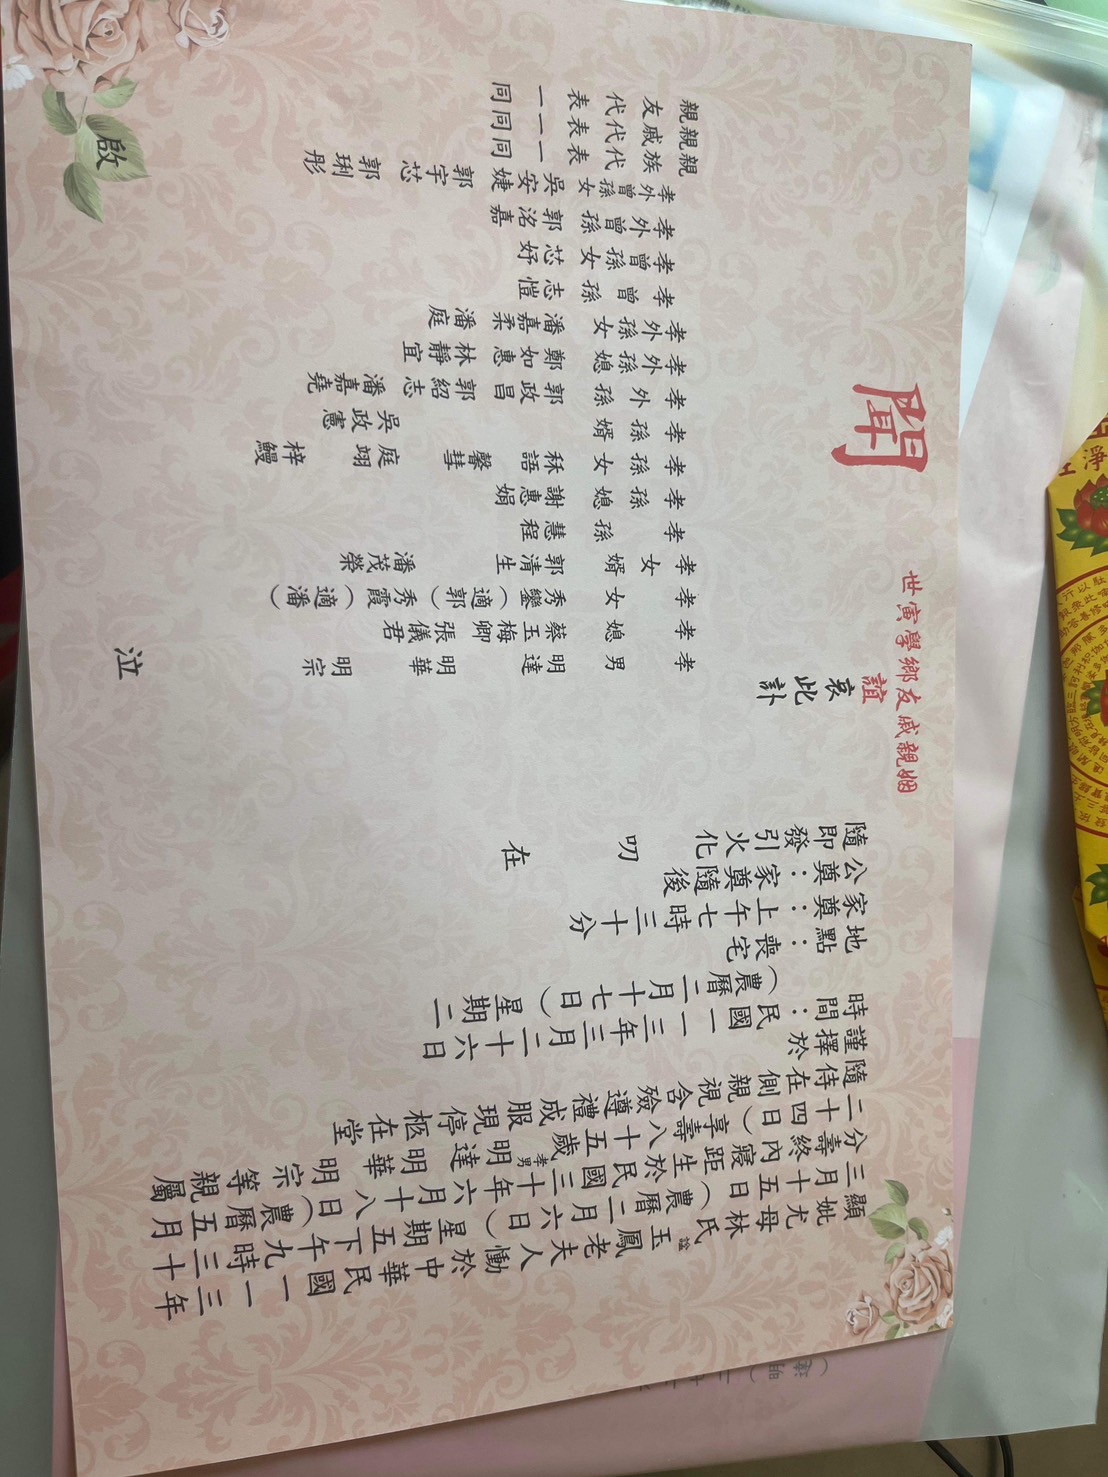 顯妣尤母林氏諱玉鳳老夫人慟於中華民國一一三年
三月十五日（農曆二月六日）星期五下午九時三十
分壽終內寢距生於民國三十年六月十八日（農曆五月
二十四日）享壽八十五歲孝男明達明華明宗等親屬
隨侍在側親視含殮遵禮成服現停柩在堂
謹擇於
時間：民國一一三年三月二十六日
（農曆二月十七日）星期二
地點：喪宅
家奠：上午七時三十分
公奠：家奠隨後
隨即發引火化
叨在
姻親戚友鄉學寅世誼
哀此訃
聞
孝男 明達 明華 明宗
孝媳 蔡玉梅卿 張儀君
孝女 秀鑾（適郭） 秀霞（適潘）
孝女婿 郭清生 潘茂榮
孝孫 慧程
孝孫媳 謝惠娟
孝孫女 秝語 馨彗 庭翊 梓鰻
孝孫婿 吳政憲
孝外孫 郭政昌 郭紹志 潘嘉堯
孝外孫媳 鄭如惠 林靜宜
孝外孫女 潘嘉柔 潘庭
孝曾孫 志愷
孝曾孫女 芯妤
孝外曾孫 郭洺嘉
孝外曾孫女 吳安婕 郭宇芯 郭琍彤
親族代表一同
親戚代表一同
親友代表一同
泣啟